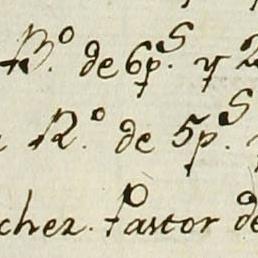 R.º de 6p.s y 2
R.º de 5p.s
chez. Pastor de